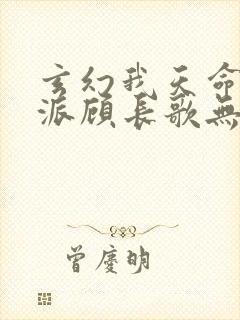 玄幻我天命
派顾长歌無
曾慶明